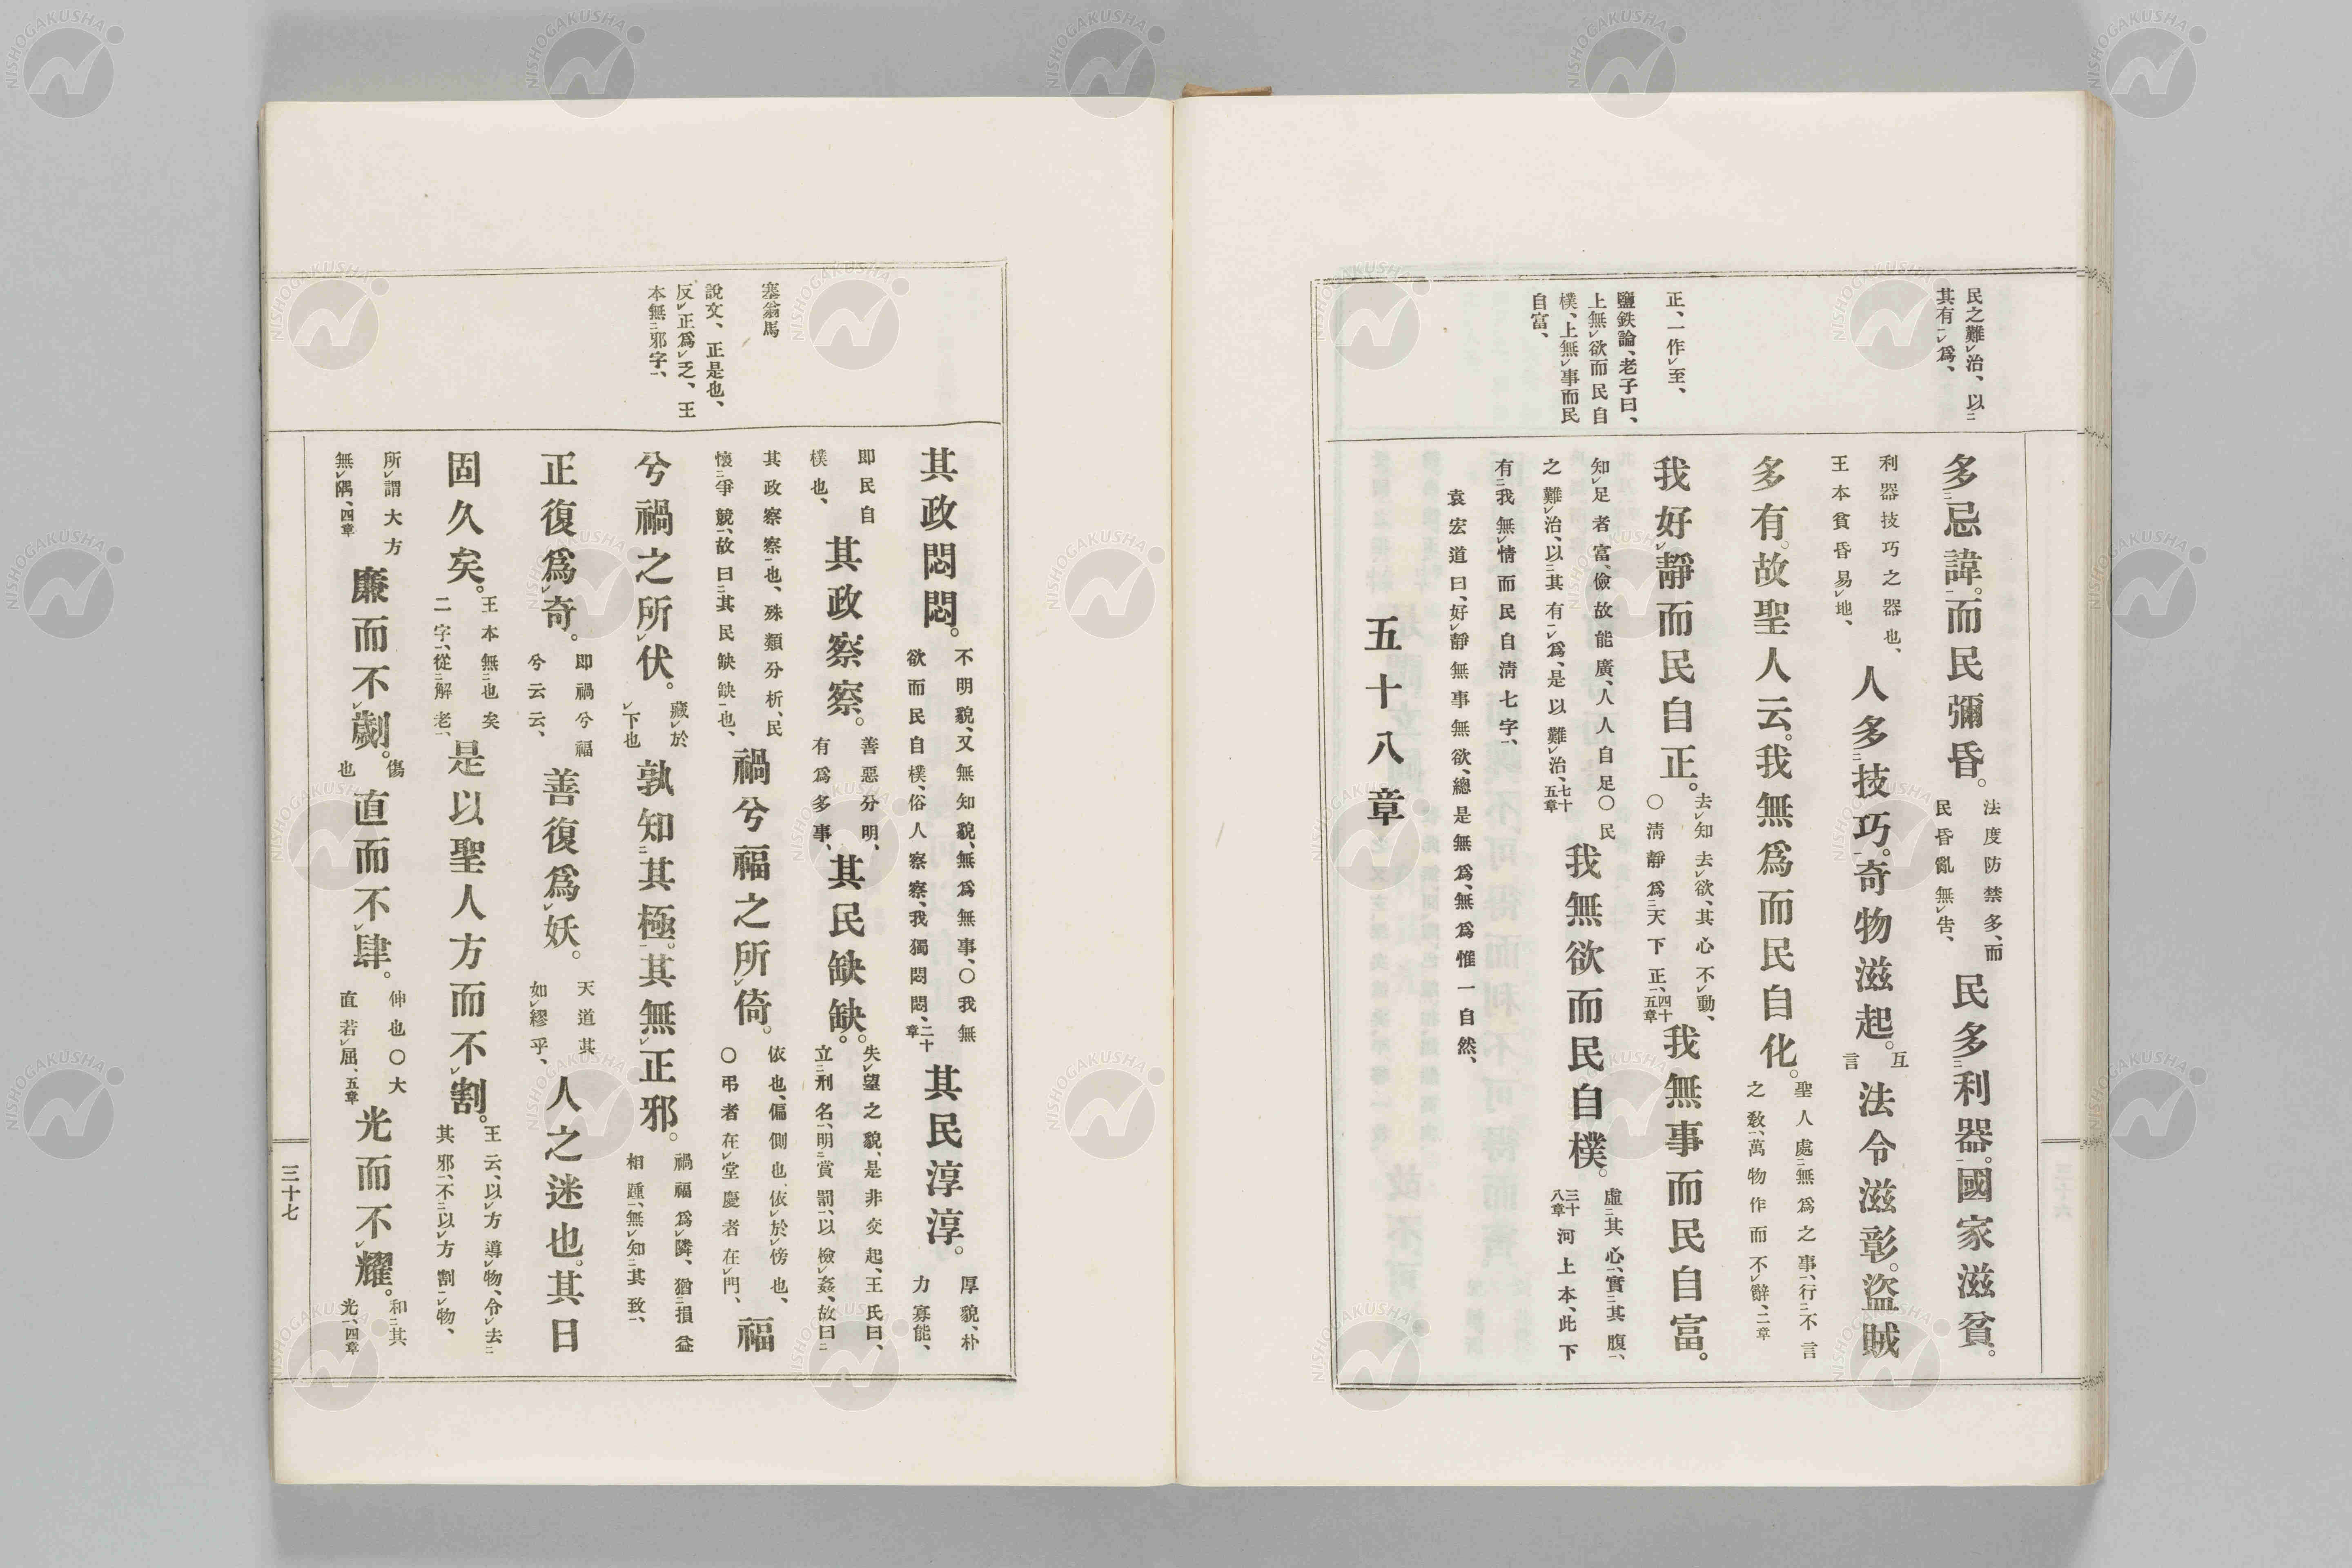 民之難㆑治、以㆓
其有㆒㆑爲、
正、一作㆑至、
鹽鉄論、老子曰、
上無㆑欲而民自
樸、上無㆑事而民
自富、
多㆓忌諱㆒。而民彌昏。法度防禁多、而民昏亂無㆑告、民多㆓利器㆒。國家滋貧。
利器技巧之器也、王本貧昏易㆑地、人多㆓技巧㆒。奇物滋起。互言法令滋彰。盜賊
多有。故聖人云。我無爲而民自化。聖人處㆓無爲之事㆒、行㆓不言之敎㆒、萬物作而不㆑辭、二章
我好㆑靜而民自正。去㆑知去㆑欲、其心不㆑動、〇淸靜爲㆓天下正㆒、四十五章我無事而民自富。
知㆑足者富、儉故能廣、人人自足〇民之難㆑治、以㆓其有㆒㆑爲、是以難㆑治、七十五章我無欲而民自樸。虛㆓其心㆒、實㆓其腹㆒、三十八章河上本、此下
有㆓我無㆑情而民自淸七字㆒、
袁宏道曰、好㆑靜無事無欲、總是無爲、無爲惟一自然、
五十八章
塞翁馬
說文、正是也、
反㆑正爲㆑乏、王
本無㆓邪字㆒、
其政悶悶。不明貌、又無知貌、無爲無事、〇我無欲而民自樸、俗人察察、我獨悶悶、二十章其民淳淳。厚貌、朴力寡能、
即民自樸也、其政察察。善惡分明、有爲多事、其民缺缺。失㆑望之貌、是非交起、王氏曰、立㆓刑名㆒、明㆓賞罰㆒、以檢㆑姦、故曰㆓
其政察察㆒也、殊類分析、民懷㆓爭競㆒、故曰㆓其民缺缺㆒也、禍兮福之所㆑倚。依也、偏側也、依㆑於㆑傍也、〇弔者在㆑堂慶者在㆑門、福
兮禍之所㆑伏。藏㆑於㆑下也孰知㆓其極㆒。其無㆑正邪。禍福爲㆑隣、猶㆓損益相踵㆒、無㆑知㆓其致㆒、
正復爲㆑奇。即禍兮福兮云云、善復爲㆑妖。天道其如㆑繆乎、人之迷也。其日
固久矣。王本無㆓也矣二字㆒、從㆓解老㆒、是以聖人方而不㆑割。王云、以㆑方導㆑物、令㆑去㆓其邪㆒、不㆓以㆑方割㆒㆑物、
所㆑謂大方無㆑隅、四章廉而不㆑劌。傷也直而不㆑肆。伸也〇大直若㆑屈、五章光而不㆑耀。和㆓其光㆒、四章
三十七
NISHOGAKUSHA